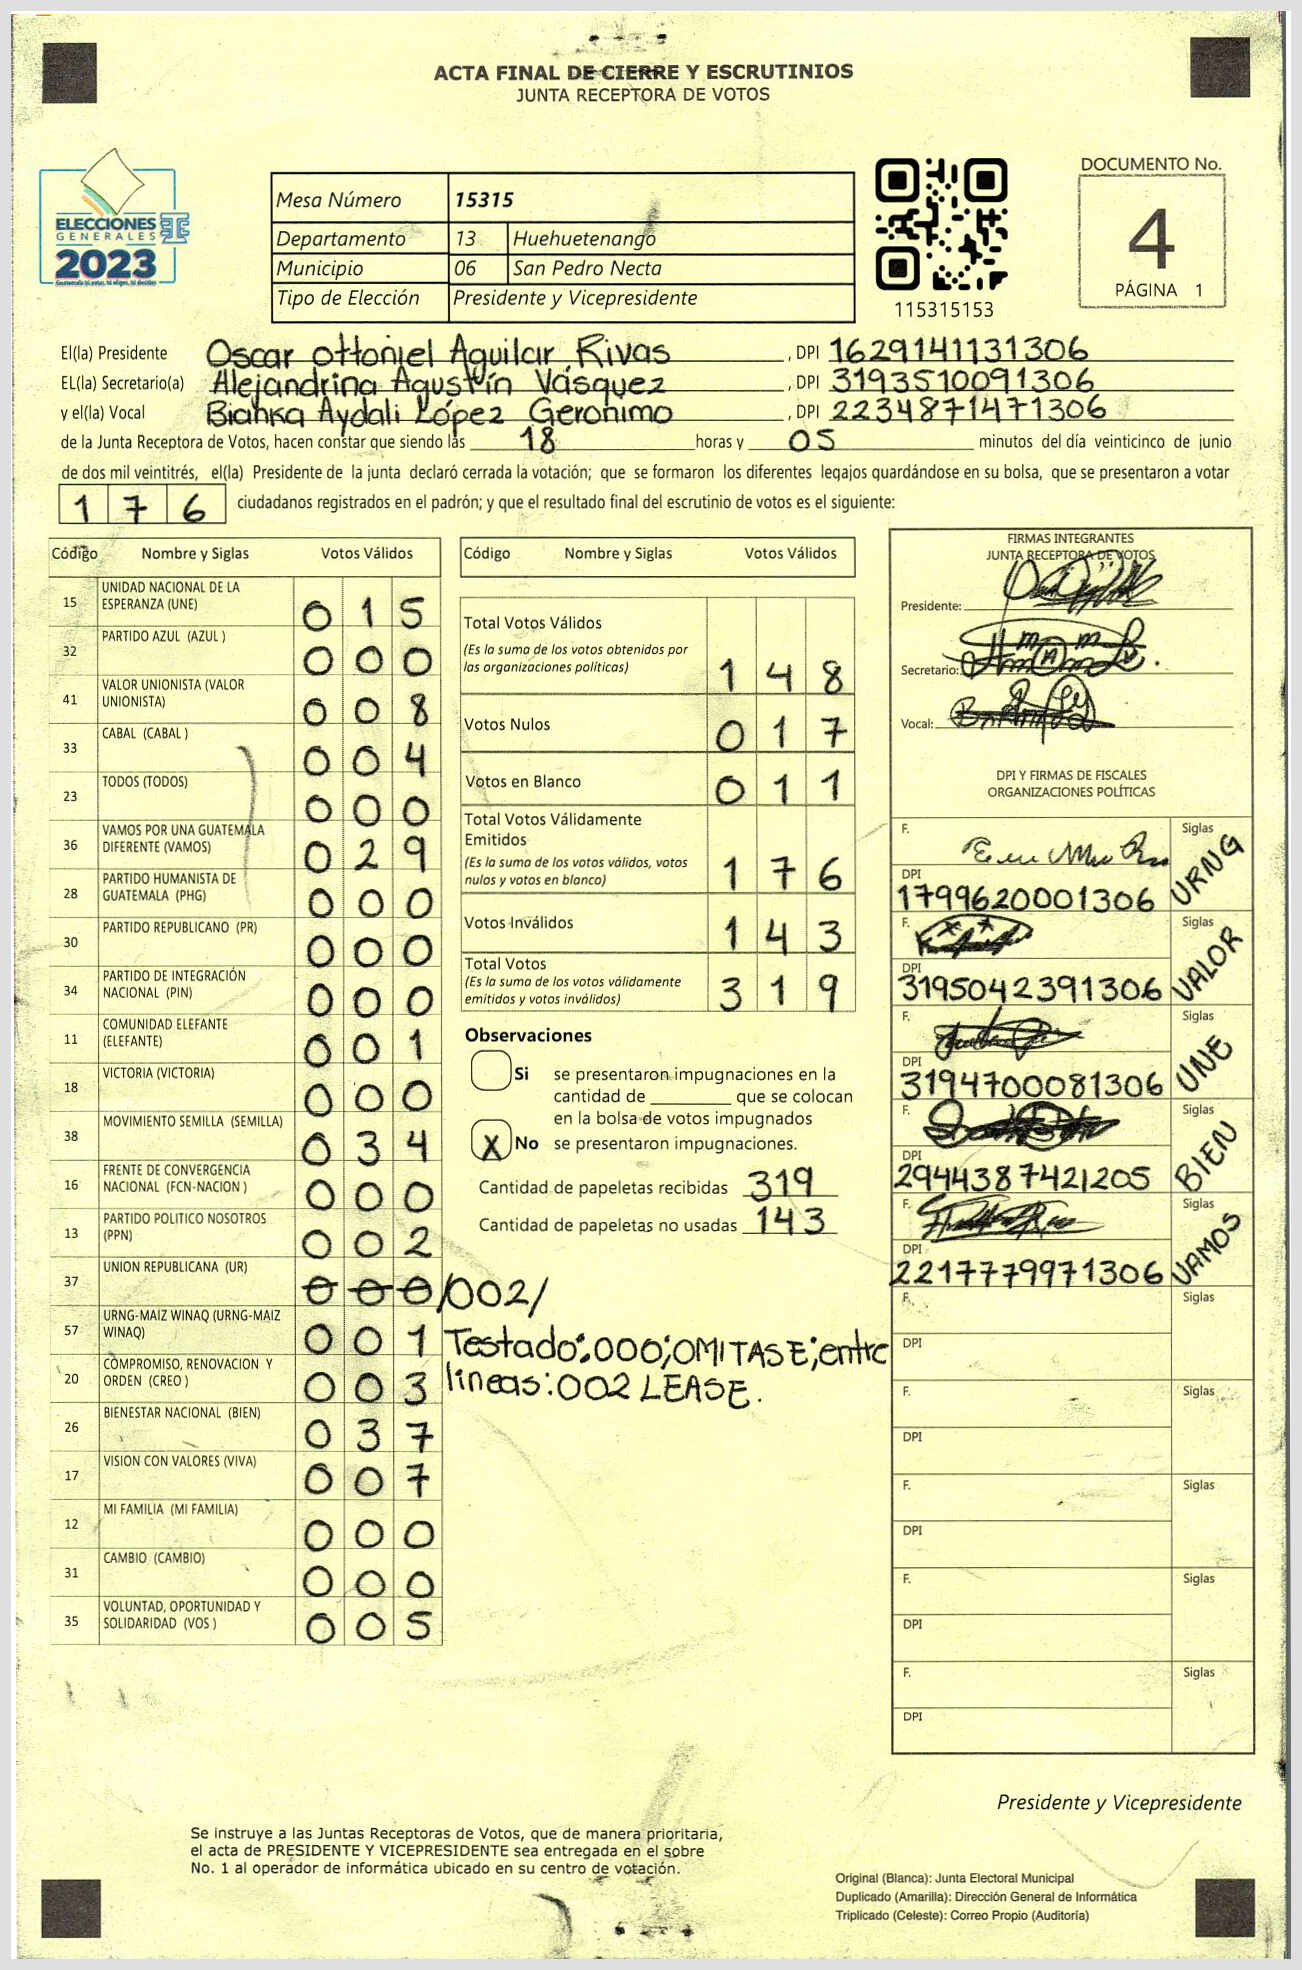 ACTA FINAL DE CIERRE Y ESCRUTINIOS
JUNTA RECEPTORA DE VOTOS
ELECCIONES
GENERALES
2023
Mesa Número 15315
Departamento 13 Huehuetenango
Municipio 06 San Pedro Necta
Tipo de Elección Presidente y Vicepresidente
115315153
DOCUMENTO No.
4
PÁGINA 1
El(la) Presidente Oscar Ottoniel Aguilar Rivas, DPI 1629141131306
EL(la) Secretario(a) Alejandrina Agustín Vásquez, DPI 3193510091306
y el(la) Vocal Bianka Aydali López Geronimo, DPI 2234871471306
de la Junta Receptora de Votos, hacen constar que siendo las 18 horas y 05 minutos del día veinticinco de junio
de dos mil veintitrés, el(la) Presidente de la junta declaró cerrada la votación; que se formaron los diferentes legajos guardándose en su bolsa, que se presentaron a votar
176 ciudadanos registrados en el padrón; y que el resultado final del escrutinio de votos es el siguiente:
Código Nombre y Siglas Votos Válidos
15 UNIDAD NACIONAL DE LA
ESPERANZA (UNE) 015
32 PARTIDO AZUL (AZUL ) 000
41 VALOR UNIONISTA (VALOR
UNIONISTA) 008
33 CABAL (CABAL ) 004
23 TODOS (TODOS) 000
36 VAMOS POR UNA GUATEMALA
DIFERENTE (VAMOS) 029
28 PARTIDO HUMANISTA DE
GUATEMALA (PHG) 000
30 PARTIDO REPUBLICANO (PR) 000
34 PARTIDO DE INTEGRACIÓN
NACIONAL (PIN) 000
11 COMUNIDAD ELEFANTE
(ELEFANTE) 001
18 VICTORIA (VICTORIA) 000
38 MOVIMIENTO SEMILLA (SEMILLA) 034
16 FRENTE DE CONVERGENCIA
NACIONAL (FCN-NACION ) 000
13 PARTIDO POLITICO NOSOTROS
(PPN) 002
37 UNION REPUBLICANA (UR) 000 /002/
57 URNG-MAIZ WINAQ (URNG-MAIZ
WINAQ) 001
20 COMPROMISO, RENOVACION Y
ORDEN (CREO ) 003
26 BIENESTAR NACIONAL (BIEN) 037
17 VISION CON VALORES (VIVA) 007
12 MI FAMILIA (MI FAMILIA) 000
31 CAMBIO (CAMBIO) 000
35 VOLUNTAD, OPORTUNIDAD Y
SOLIDARIDAD (VOS ) 005
Código Nombre y Siglas Votos Válidos
Total Votos Válidos
(Es la suma de los votos obtenidos por
las organizaciones políticas) 148
Votos Nulos 017
Votos en Blanco 011
Total Votos Válidamente
Emitidos
(Es la suma de los votos válidos, votos
nulos y votos en blanco) 176
Votos Inválidos 143
Total Votos
(Es la suma de los votos válidamente
emitidos y votos inválidos) 319
Observaciones
Si se presentaron impugnaciones en la
cantidad de ________ que se colocan
en la bolsa de votos impugnados
X No se presentaron impugnaciones.
Cantidad de papeletas recibidas 319
Cantidad de papeletas no usadas 143
Testado:000;OMITASE;entre
líneas:002 LEASE.
FIRMAS INTEGRANTES
JUNTA RECEPTORA DE VOTOS
Presidente:
Secretario:
Vocal:
DPI Y FIRMAS DE FISCALES
ORGANIZACIONES POLÍTICAS
F. Siglas
DPI 1799620001306 URNG
F. Siglas
DPI 3195042391306 VALOR
F. Siglas
DPI 3194700081306 UNE
F. Siglas
DPI 2944387421205 BIEN
F. Siglas
DPI 2217779971306 VAMOS
F. Siglas
DPI
F. Siglas
DPI
F. Siglas
DPI
F. Siglas
DPI
F. Siglas
DPI
Presidente y Vicepresidente
Se instruye a las Juntas Receptoras de Votos, que de manera prioritaria,
el acta de PRESIDENTE Y VICEPRESIDENTE sea entregada en el sobre
No. 1 al operador de informática ubicado en su centro de votación.
Original (Blanca): Junta Electoral Municipal
Duplicado (Amarilla): Dirección General de Informática
Triplicado (Celeste): Correo Propio (Auditoría)